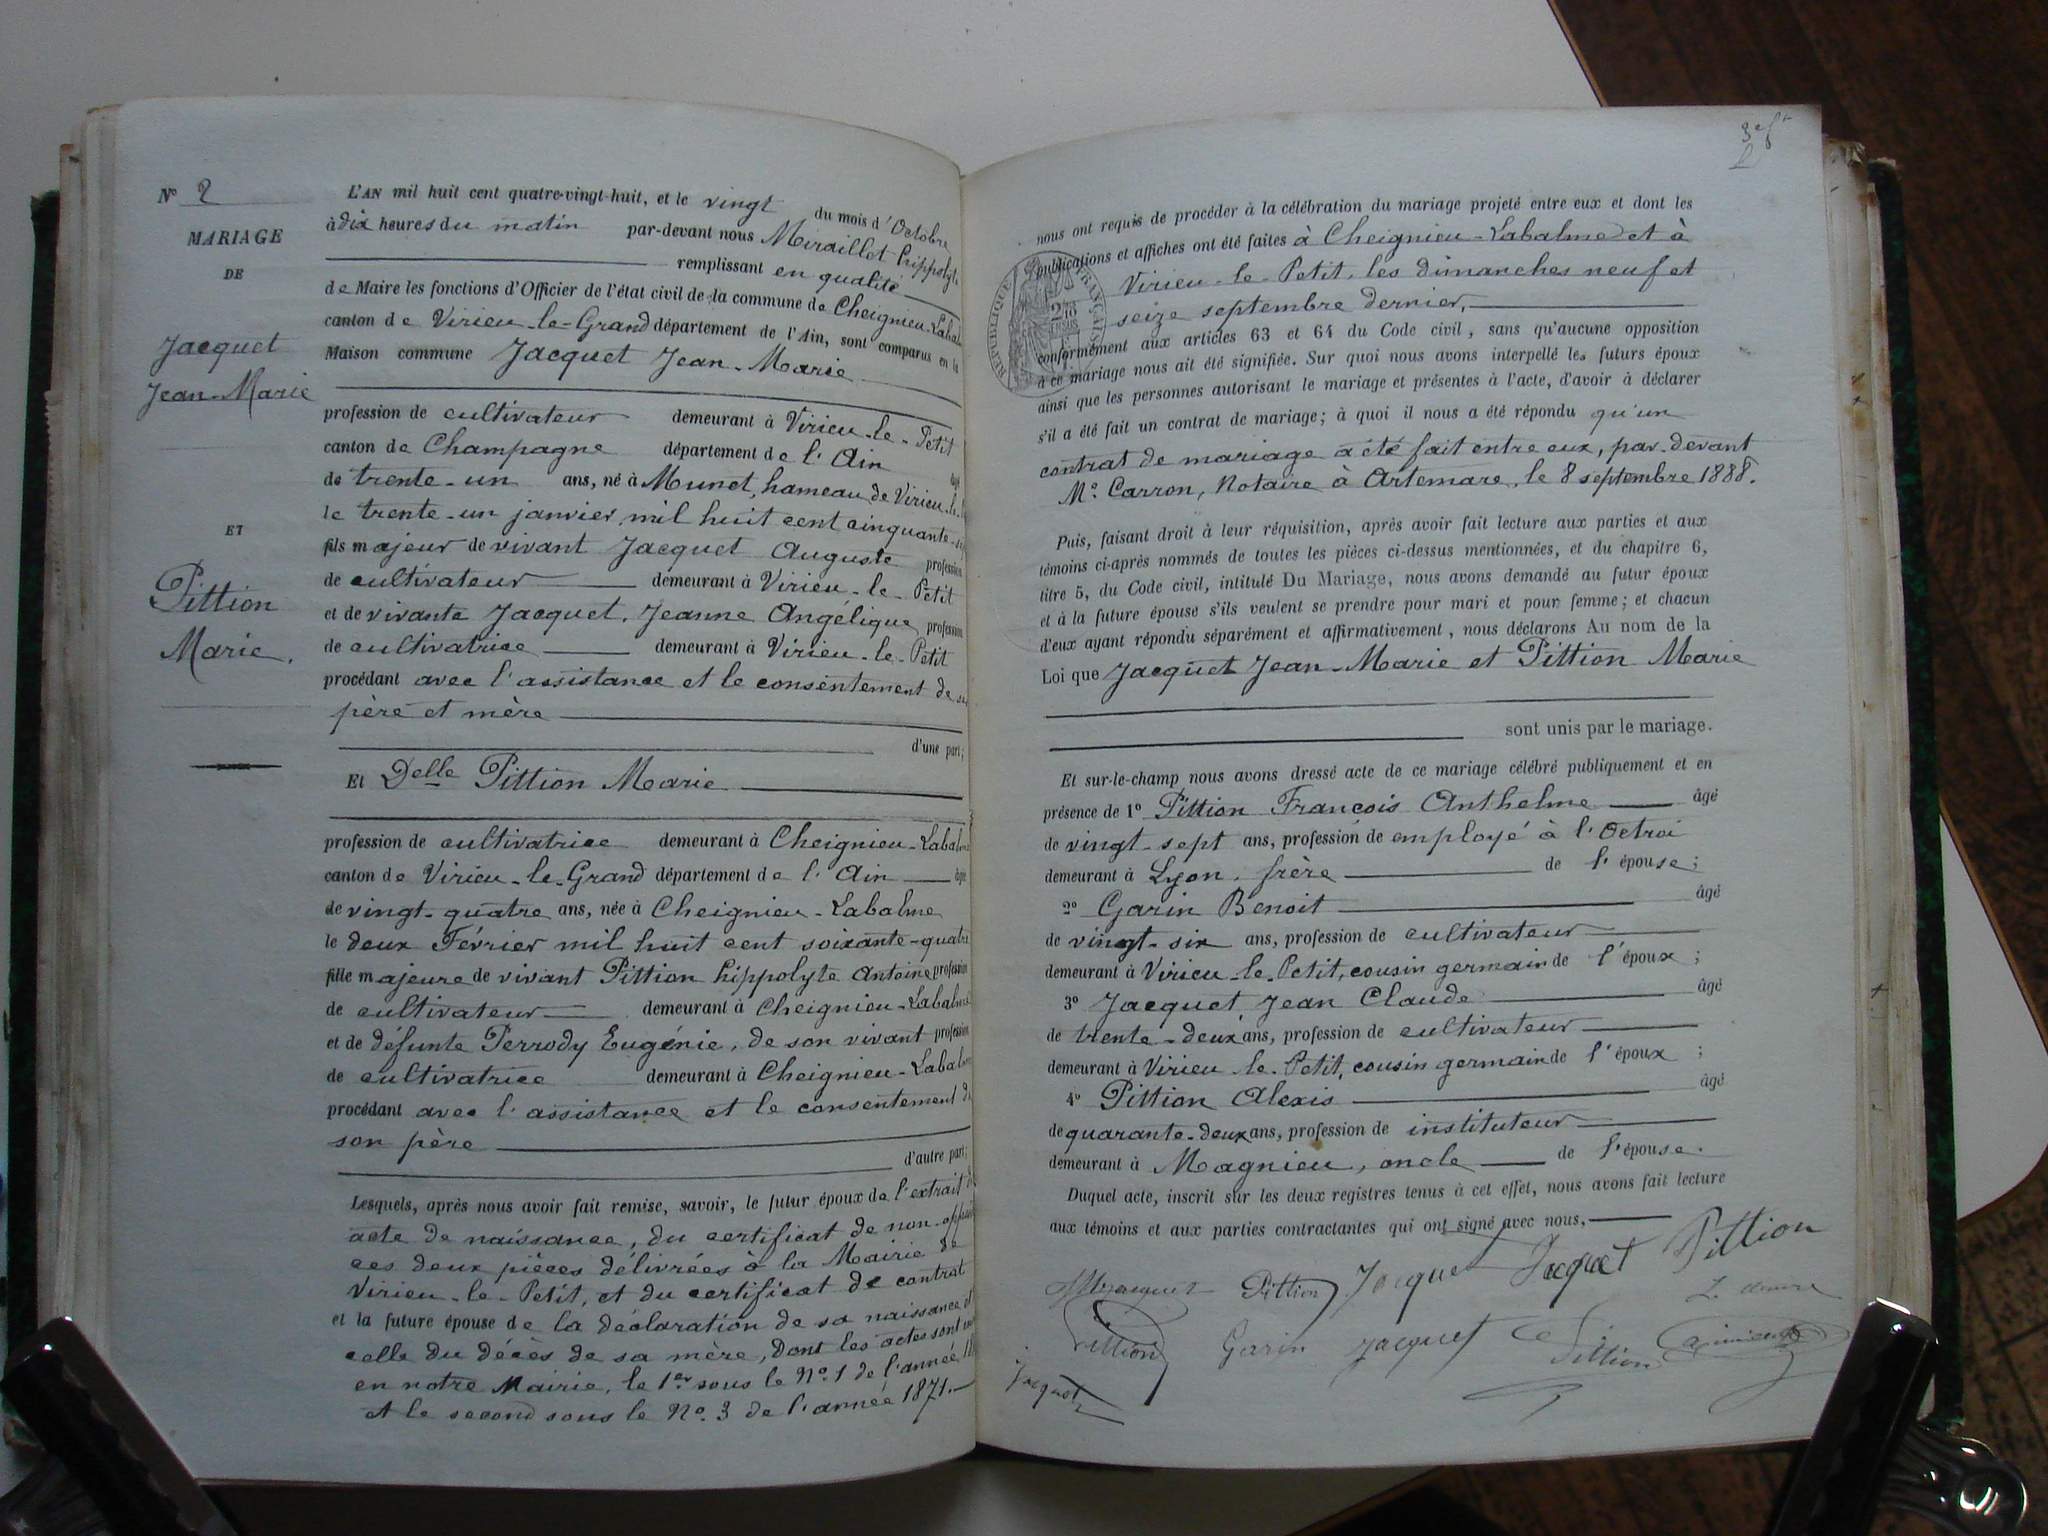 N° 2
MARIAGE
DE
Jacquet
Jean-Marie
ET
Pittion
Marie.
L'AN mil huit cent quatre-vingt-huit, et le vingt du mois d'Octobre
à dix heures du matin par-devant nous Miraillet hippolyte
remplissant en qualité
de Maire les fonctions d'Officier de l'état civil de la commune de Cheignieu-Labalme
canton de Virieu-le-Grand département de l'Ain, sont comparus en la
Maison commune Jacquet Jean-Marie
profession de cultivateur demeurant à Virieu-le-Petit
canton de Champagne département de l'Ain âgé
de trente-un ans, né à Munet, hameau de Virieu-le-
le trente-un janvier mil huit cent cinquante-
fils majeur de vivant Jacquet Auguste profession
de cultivateur demeurant à Virieu-le-Petit
et de vivante Jacquet, Jeanne Angélique profession
de cultivatrice demeurant à Virieu-le-Petit
procédant avec l'assistance et le consentement de
père et mère
d'une part;
Et Delle Pittion Marie
profession de cultivatrice demeurant à Cheignieu-Labalme
canton de Virieu-le-Grand département de l'Ain âgée
de vingt-quatre ans, née à Cheignieu-Labalme
le deux Février mil huit cent soixante-quatre
fille majeure de vivant Pittion hippolyte Antoine profession
de cultivateur demeurant à Cheignieu-Labalme
et de défunte Perrody Eugénie, de son vivant profession
de cultivatrice demeurant à Cheignieu-Labalme
procédant avec l'assistance et le consentement de
son père
d'autre part;
Lesquels, après nous avoir fait remise, savoir, le futur époux de l'extrait
acte de naissance, du certificat de non-
ces deux pièces délivrées à la Mairie de
Virieu-le-Petit, et du certificat de contrat
et la future épouse de la déclaration de sa naissance et
celle du décès de sa mère, dont les actes sont
en notre Mairie, le 1er sous le N° 1 de l'année
et le second sous le N° 3 de l'année 1871.
nous ont requis de procéder à la célébration du mariage projeté entre eux et dont les
publications et affiches ont été faites à Cheignieu-Labalme et à
Virieu-le-Petit, les dimanches neuf et
seize septembre dernier,
conformément aux articles 63 et 64 du Code civil, sans qu'aucune opposition
à ce mariage nous ait été signifiée. Sur quoi nous avons interpellé les futurs époux
ainsi que les personnes autorisant le mariage et présentes à l'acte, d'avoir à déclarer
s'il a été fait un contrat de mariage; à quoi il nous a été répondu qu'un
contrat de mariage a été fait entre eux, par-devant
Me Carron, Notaire à Artemare, le 8 septembre 1888.
Puis, faisant droit à leur réquisition, après avoir fait lecture aux parties et aux
témoins ci-après nommés de toutes les pièces ci-dessus mentionnées, et du chapitre 6,
titre 5, du Code civil, intitulé Du Mariage, nous avons demandé au futur époux
et à la future épouse s'ils veulent se prendre pour mari et pour femme; et chacun
d'eux ayant répondu séparément et affirmativement, nous déclarons Au nom de la
Loi que Jacquet Jean-Marie et Pittion Marie
sont unis par le mariage.
Et sur-le-champ nous avons dressé acte de ce mariage célébré publiquement et en
présence de 1° Pittion François Anthelme âgé
de vingt-sept ans, profession de employé à l'Octroi
demeurant à Lyon, frère de l'épouse;
2° Garin Benoit âgé
de vingt-six ans, profession de cultivateur
demeurant à Virieu-le-Petit, cousin germain de l'époux;
3° Jacquet Jean Claude âgé
de trente-deux ans, profession de cultivateur
demeurant à Virieu-le-Petit, cousin germain de l'époux;
4° Pittion Alexis âgé
de quarante-deux ans, profession de instituteur
demeurant à Magnieu, oncle de l'épouse.
Duquel acte, inscrit sur les deux registres tenus à cet effet, nous avons fait lecture
aux témoins et aux parties contractantes qui ont signé avec nous.
Jacquet Pittion Jacquet Jacquet Pittion
Pittion Garin Jacquet Pittion
Jacquet
RÉPUBLIQUE FRANÇAISE